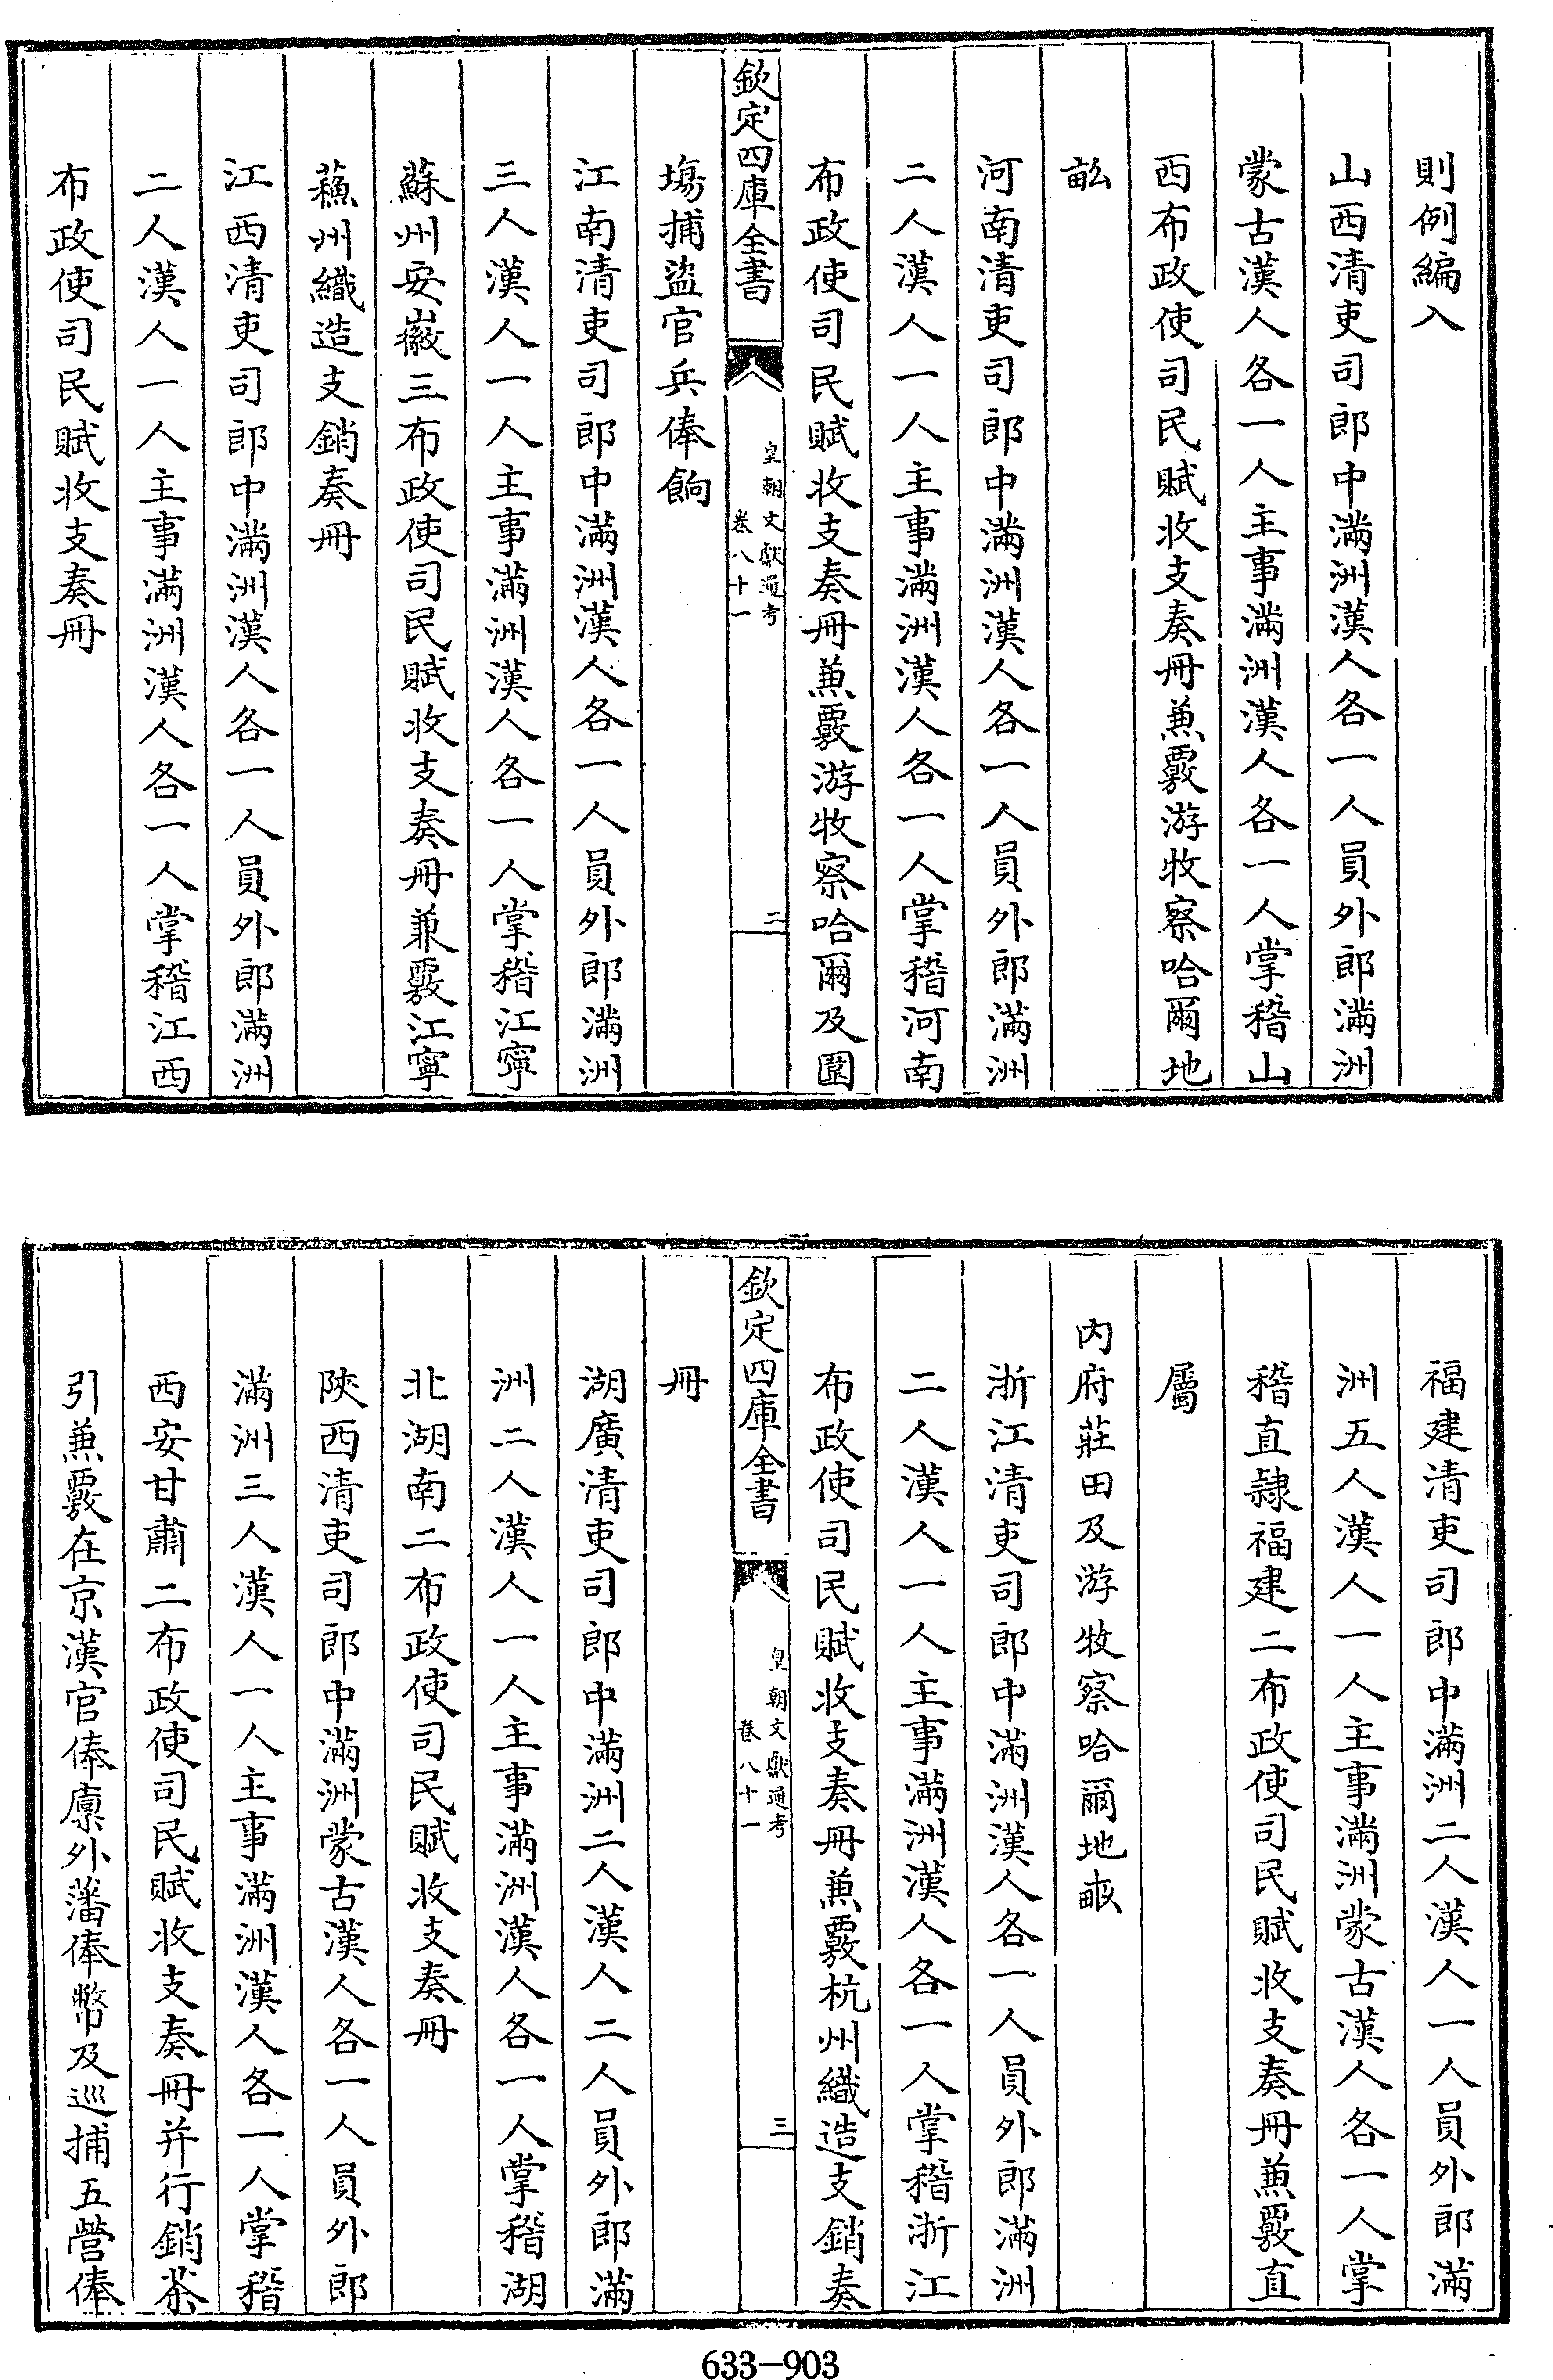 則例編入
山西清吏司郎中滿洲漢人各一人員外郎滿洲
蒙古漢人各一人主事滿洲漢人各一人掌稽山
西布政使司民賦收支奏冊兼覈游牧察哈爾地
畝
河南清吏司郎中滿洲漢人各一人員外郎滿洲
二人漢人一人主事滿洲漢人各一人掌稽河南
布政使司民賦收支奏冊兼覈游牧察哈爾及圍
欽定四庫全書
皇朝文獻通考
卷八十一
二
塲捕盜官兵俸餉
江南清吏司郎中滿洲漢人各一人員外郎滿洲
三人漢人一人主事滿洲漢人各一人掌稽江寧
蘇州安徽三布政使司民賦收支奏冊兼覈江寧
蘓州織造支銷奏冊
江西清吏司郎中滿洲漢人各一人員外郎滿洲
二人漢人一人主事滿洲漢人各一人掌稽江西
布政使司民賦收支奏冊
福建清吏司郎中滿洲二人漢人一人員外郎滿
洲五人漢人一人主事滿洲蒙古漢人各一人掌
稽直隸福建二布政使司民賦收支奏冊兼覈直
屬
内府莊田及游牧察哈爾地畝
浙江清吏司郎中滿洲漢人各一人員外郎滿洲
二人漢人一人主事滿洲漢人各一人掌稽浙江
布政使司民賦收支奏冊兼覈杭州織造支銷奏
欽定四庫全書
皇朝文獻通考
卷八十一
三
冊
湖廣清吏司郎中滿洲二人漢人二人員外郎滿
洲二人漢人一人主事滿洲漢人各一人掌稽湖
北湖南二布政使司民賦收支奏冊
陝西清吏司郎中滿洲蒙古漢人各一人員外郎
滿洲三人漢人一人主事滿洲漢人各一人掌稽
西安甘肅二布政使司民賦收支奏冊并行銷茶
引兼覈在京漢官俸廪外藩俸幣及巡捕五營俸
633-903